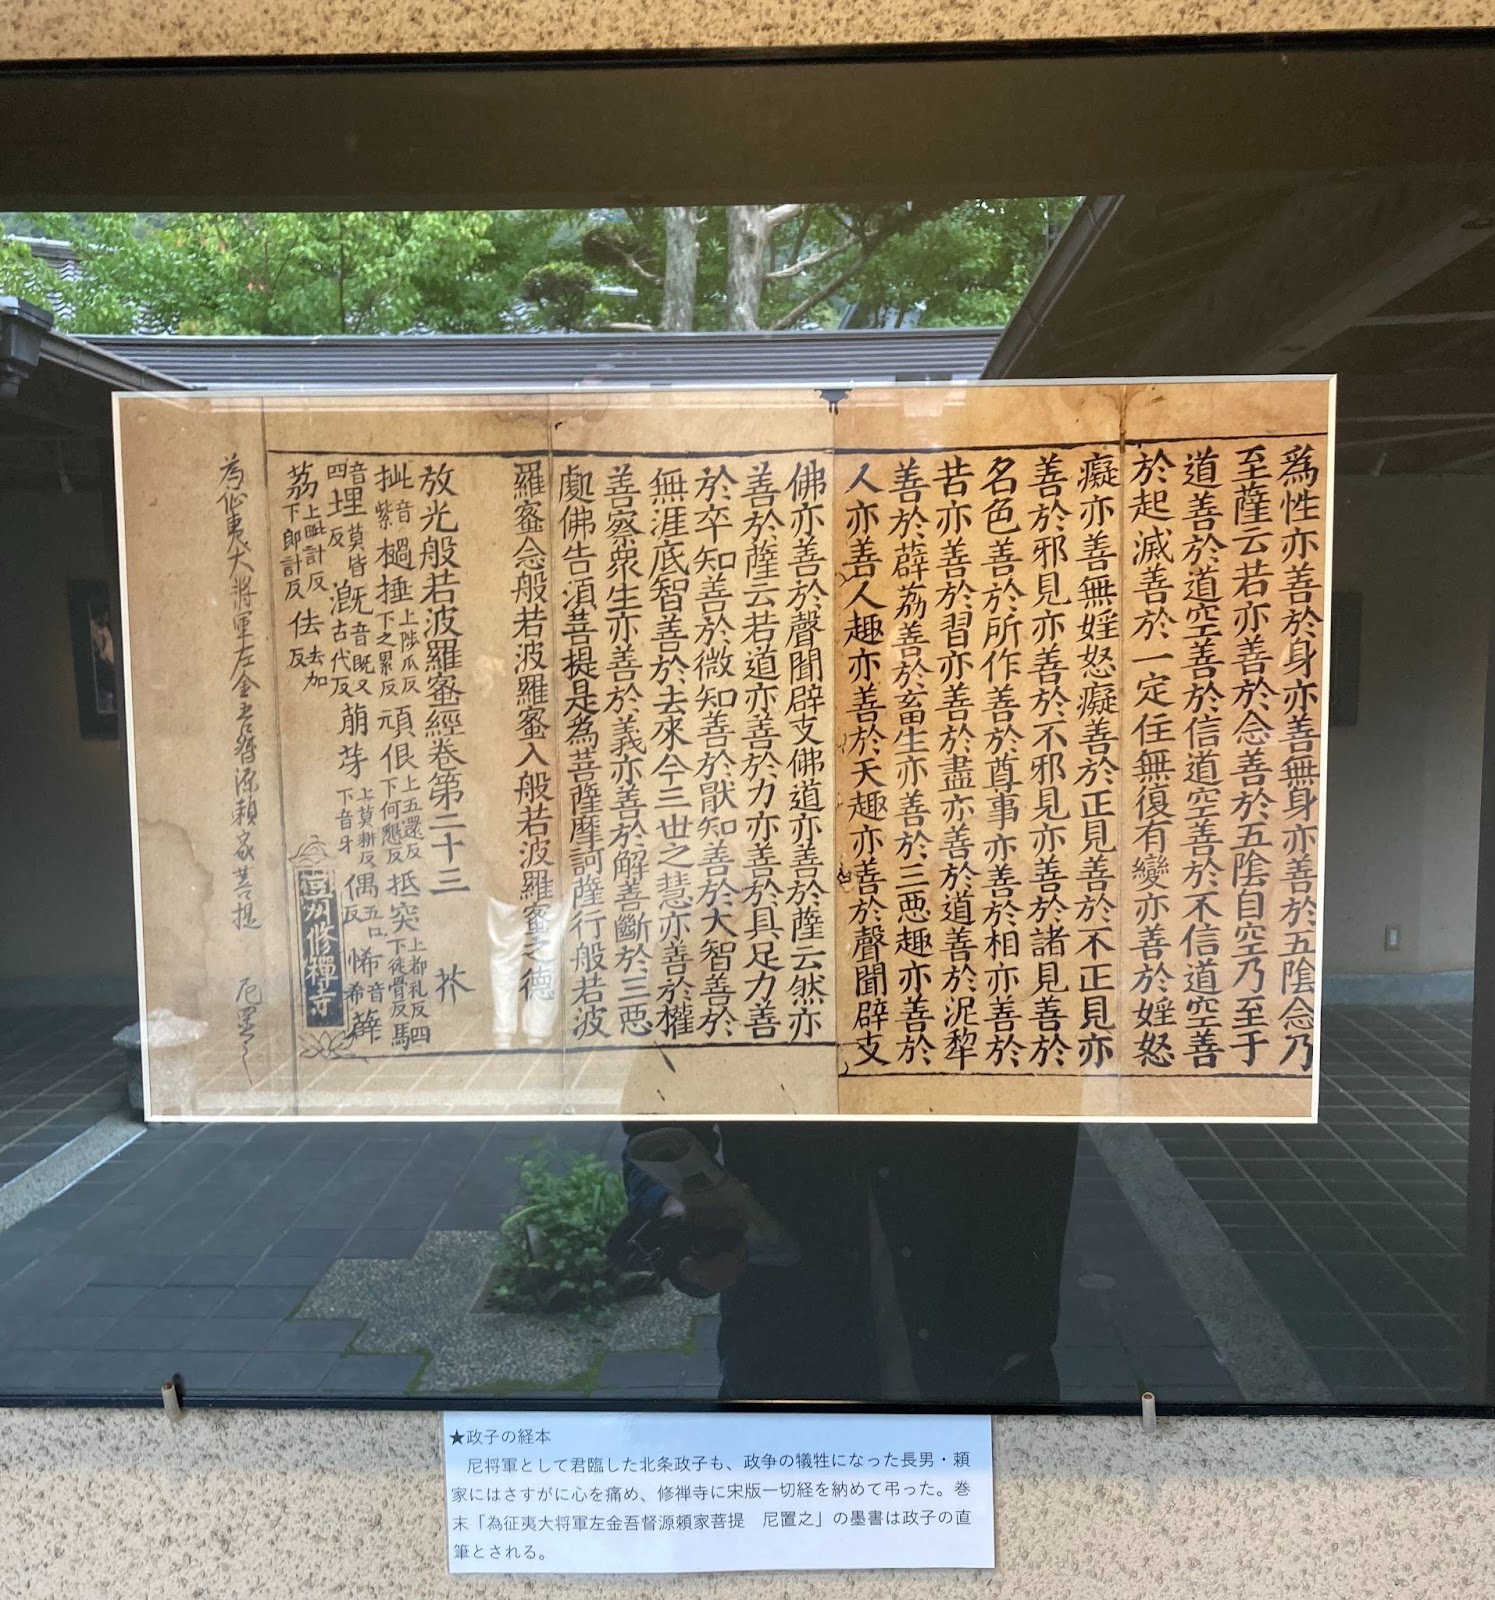 爲性亦善於身亦善無身亦善於五陰念乃
至薩云若亦善於念善於五陰自空乃至于
道善於道空善於信道空善於不信道空善
於起滅善於一定住無復有變亦善於婬怒
癡亦善無婬怒癡善於正見善於不正見亦
善於邪見亦善於不邪見亦善於諸見善於
名色善於所作善於尊事亦善於相亦善於
苦亦善於習亦善於盡亦善於道善於泥犂
善於薜荔善於畜生亦善於三惡趣亦善於
人亦善人趣亦善於天趣亦善於聲聞辟支
佛亦善於聲聞辟支佛道亦善於薩云然亦
善於薩云若道亦善於力亦善於具足力善
於卒知善於微知善於猒知善於大智善於
無涯底智善於去來今三世之慧亦善於權
善察衆生亦善於義亦善於解善斷於三惡
處佛告須菩提是爲菩薩摩訶薩行般若波
羅蜜念般若波羅蜜入般若波羅蜜之德
放光般若波羅蜜經卷第二十三 芥
扯音紫 檛捶上陟瓜反下之累反 頑佷上五還反下何懇反 抵突上都礼反下徒骨反 駡
四音 埋莫皆反 溉音既又古代反 萠芽上莫耕反下音牙 偶五口反 悕音希 薜
荔下郎計反 佉去加反
豆州修禪寺
為征夷大將軍左金吾督源頼家菩提 尼置之
★政子の経本
尼将軍として君臨した北条政子も、政争の犠牲になった長男・頼
家にはさすがに心を痛め、修禅寺に宋版一切経を納めて弔った。巻
末「為征夷大将軍左金吾督源頼家菩提　尼置之」の墨書は政子の直
筆とされる。